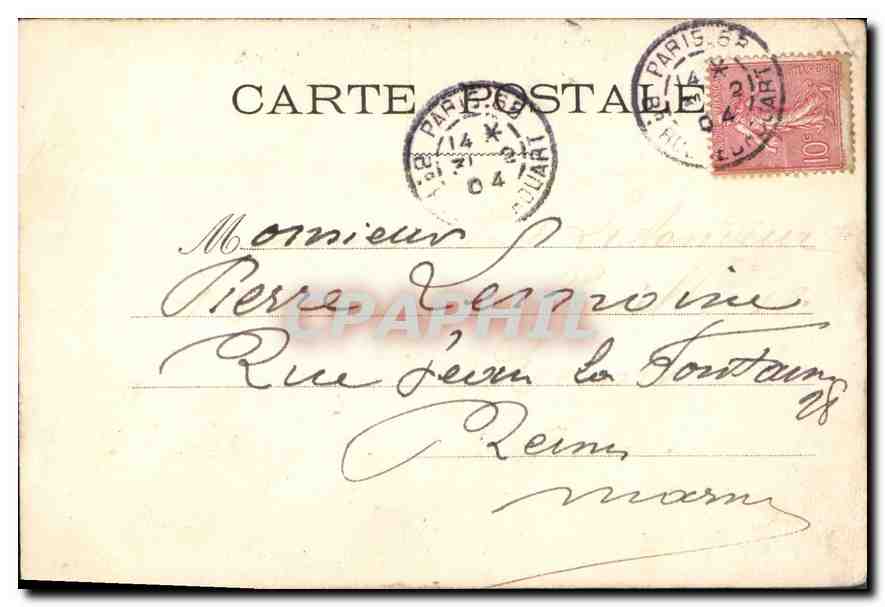 CARTE POSTALE
PARIS 68
14 * 2
04
PARIS 68
14 * 2
04
10c
Monsieur
Pierre Lemoine
CPAPHIL
Rue Jean La Fontaine
28
Reims
Marne